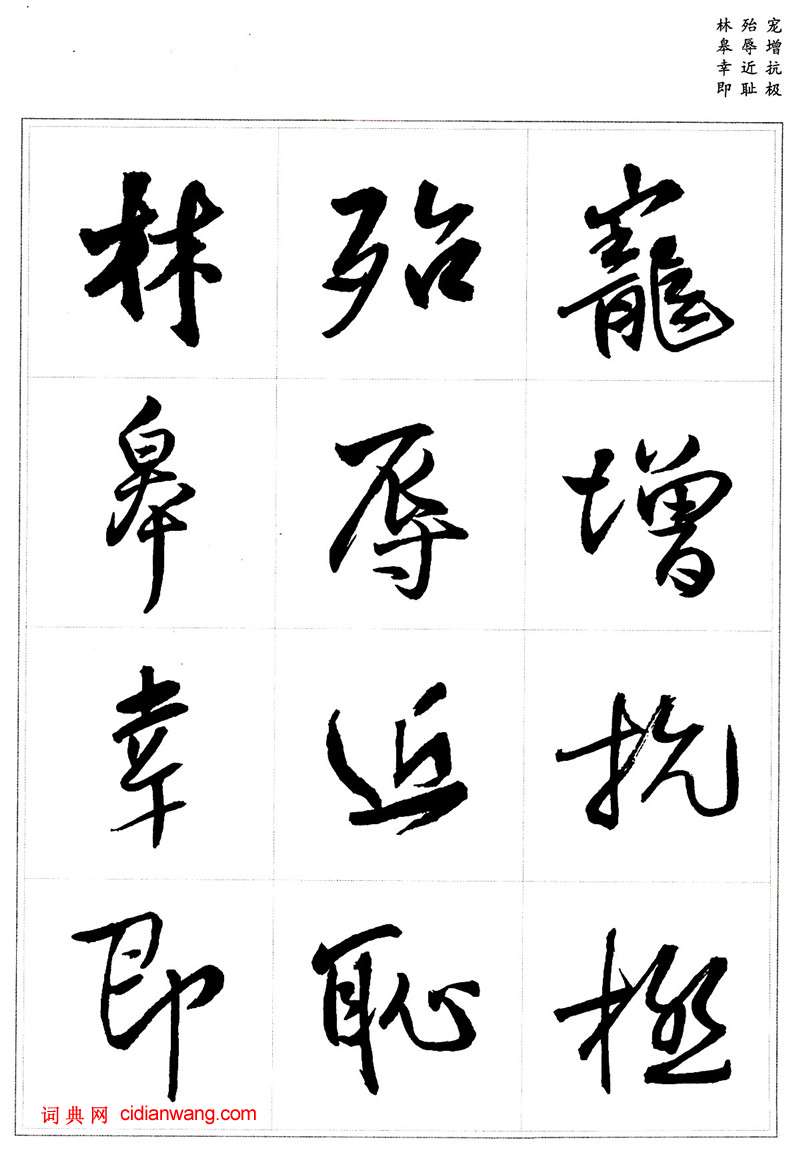 宠增抗极
殆辱近耻
林皋幸即
寵增抗極
殆辱近恥
林皋幸即
词典网 cidianwang.com